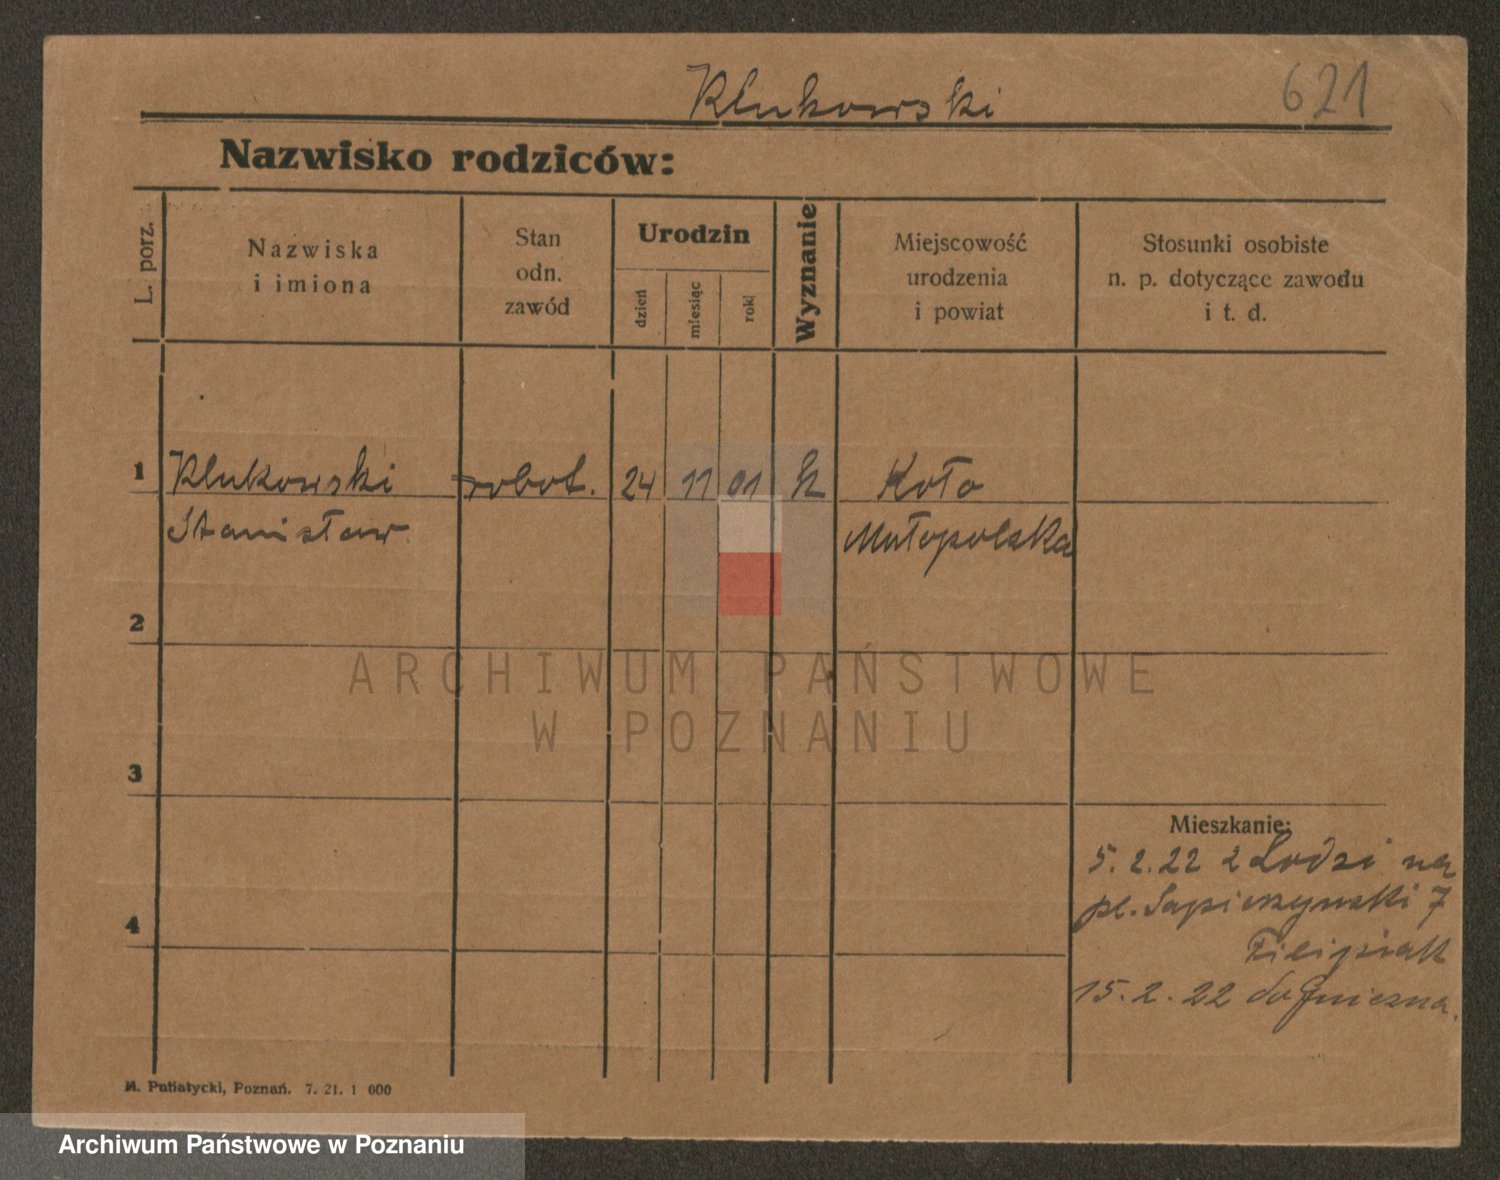 Klukowski
621
Nazwisko rodziców:
L. porz.
Nazwiska
i imiona
Stan
odn.
zawód
Urodzin
dzień
miesiąc
rok
Wyznanie
Miejscowość
urodzenia
i powiat
Stosunki osobiste
n. p. dotyczące zawodu
i t. d.
1
Klukowski robot. 24 11 01 k Koło
Stanisław Małopolska
2
ARCHIWUM PAŃSTWOWE
W POZNANIU
3
Mieszkanie:
5. 2. 22 z Lodzi na
4
pl. Sapieszynski 7
Filipiak
15. 2. 22 do Gniezna.
M. Putiatycki, Poznań. 7. 21. 1 000
Archiwum Państwowe w Poznaniu